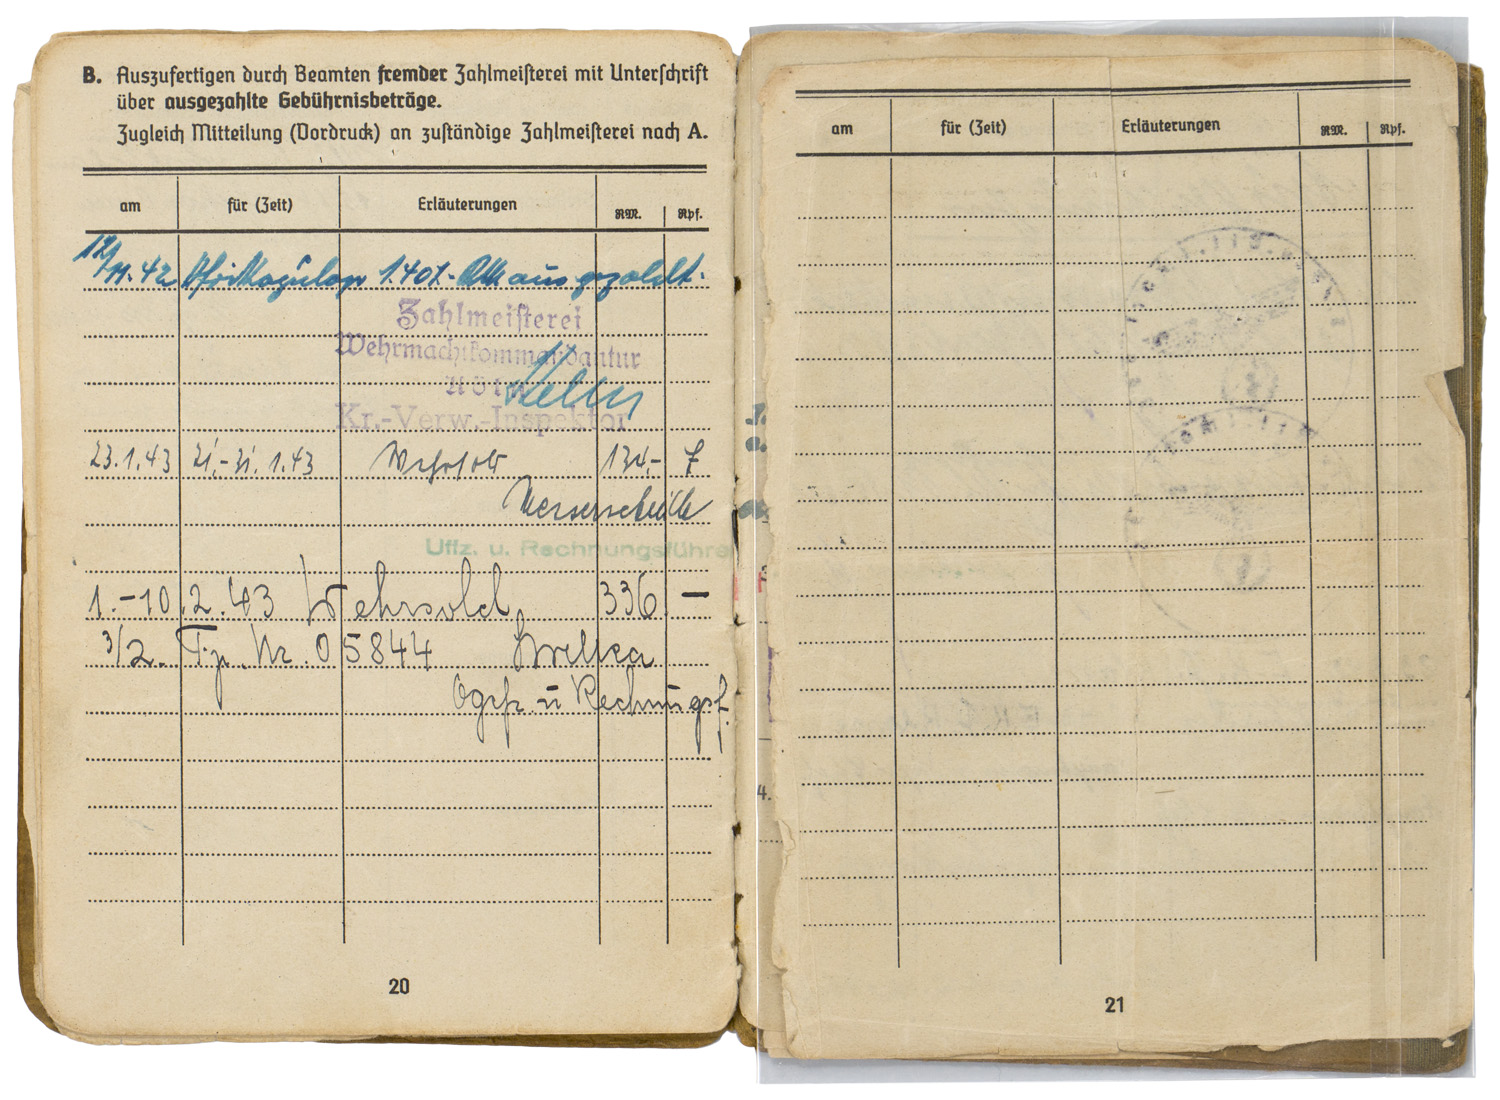 B. Auszufertigen durch Beamten fremder Zahlmeisterei mit Unterschrift
über ausgezahlte Gebührnisbeträge.
Zugleich Mitteilung (Vordruck) an zuständige Zahlmeisterei nach A.
am für (Zeit) Erläuterungen RM. Rpf.
12/11.42 Afrikazulage 140.- RM ausgezahlt.
Zahlmeisterei
Wehrmachtkommandantur
Köln
Kr.-Verw.-Inspektor
23.1.43 21.-31.1.43 Wehrsold 134,-
Uffz. u. Rechnungsführer
1.-10.2.43 Wehrsold 336 —
3/2. Fp. Nr. 05844
Ogefr. u Rechnungsf.
20
am für (Zeit) Erläuterungen RM. Rpf.
4.
21